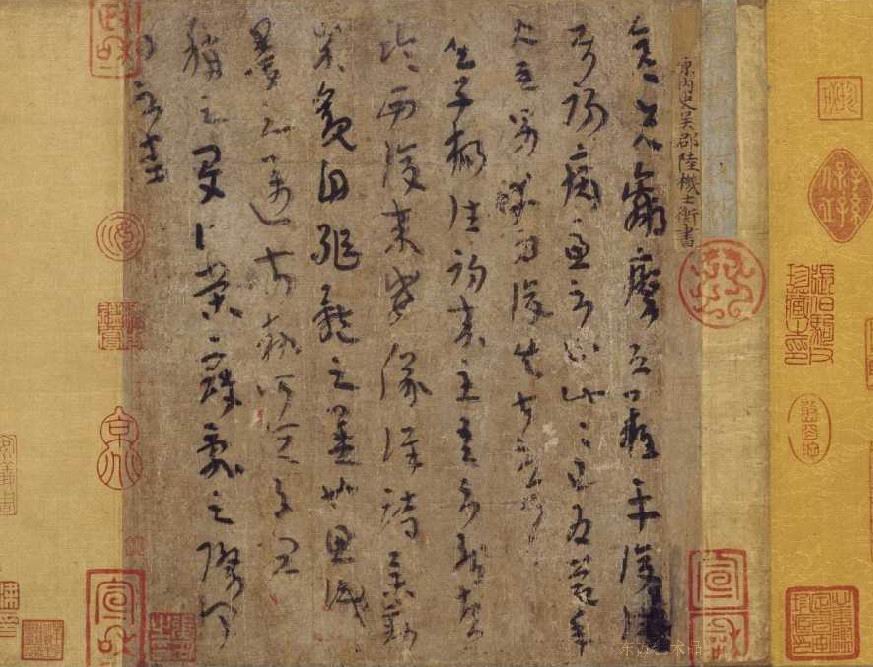 晉內史吳郡陸機士衡書
彦先羸瘵恐難平復往屬
初病慮不止此此已為慶承
使唯男幸為復失前憂耳
吳子楊往初來主吾不能盡
臨西復來威儀詳跱舉動
成觀自軀體之美也思識
量之邁前執所恒有宜
稱之夏伯榮寇亂之際聞
問不悉
政和
宣和
宣和
張伯駒父珍藏之印